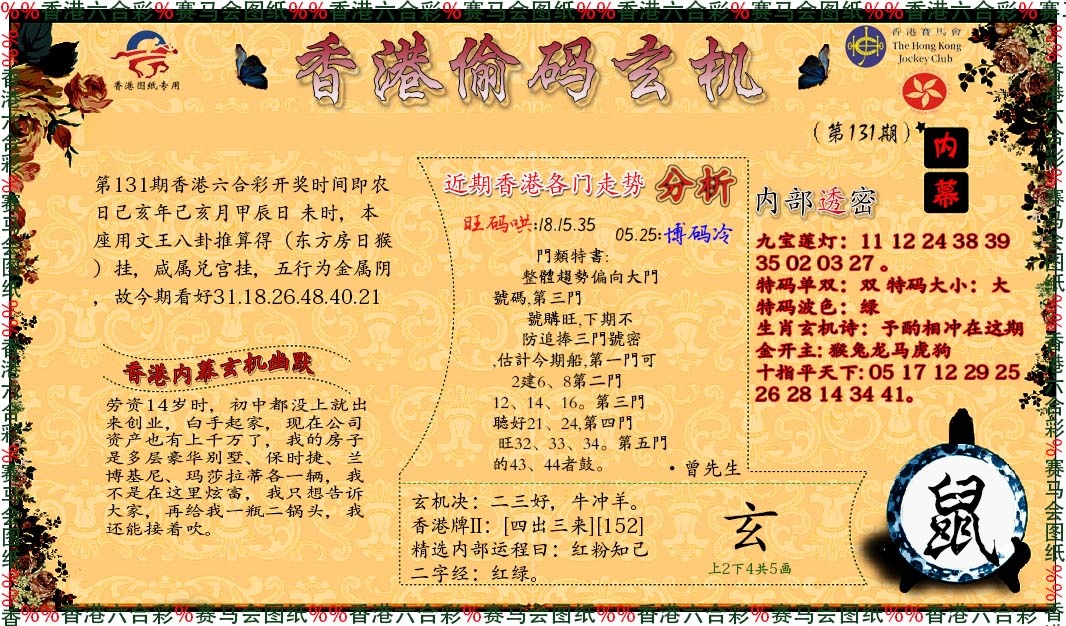 %%香港六合彩%赛马会图纸%%香港六合彩%赛马会图纸%%香港六合彩%赛马会图纸%%香港六合彩%赛
香港图纸专用
香港偷码玄机
香港賽馬會
The Hong Kong
Jockey Club
(第131期)
内
幕
第131期香港六合彩开奖时间即农
日己亥年己亥月甲辰日 未时，本
座用文王八卦推算得（东方房日猴
）挂，咸属兑宫挂，五行为金属阴
，故今期看好31.18.26.48.40.21
香港内幕玄机幽默
劳资14岁时，初中都没上就出
来创业，白手起家，现在公司
资产也有上千万了，我的房子
是多层豪华别墅、保时捷、兰
博基尼、玛莎拉蒂各一辆，我
不是在这里炫富，我只想告诉
大家，再给我一瓶二锅头，我
还能接着吹。
近期香港各门走势 分析
旺码哄:18.15.35
05.25:博码冷
門類特書:
整體趨勢偏向大門
號碼,第三門
號購旺,下期不
防追捧三門號密
,估計今期船,第一門可
2建6、8第二門
12、14、16。第三門
聽好21、24,第四門
旺32、33、34。第五門
的43、44者鼓。
·曾先生
玄机决：二三好，牛冲羊。
香港牌II：[四出三来][152]
精选内部运程曰：红粉知己
二字经：红绿。
玄
上2下4共5画
内部透密
九宝莲灯：11 12 24 38 39
35 02 03 27 。
特码单双：双 特码大小：大
特码波色：绿
生肖玄机诗：予酌相冲在这期
金开主: 猴兔龙马虎狗
十指平天下: 05 17 12 29 25
26 28 14 34 41。
鼠
香%%香港六合彩%赛马会图纸%%香港六合彩%赛马会图纸%%香港六合彩%赛马会图纸%%香港六合彩%